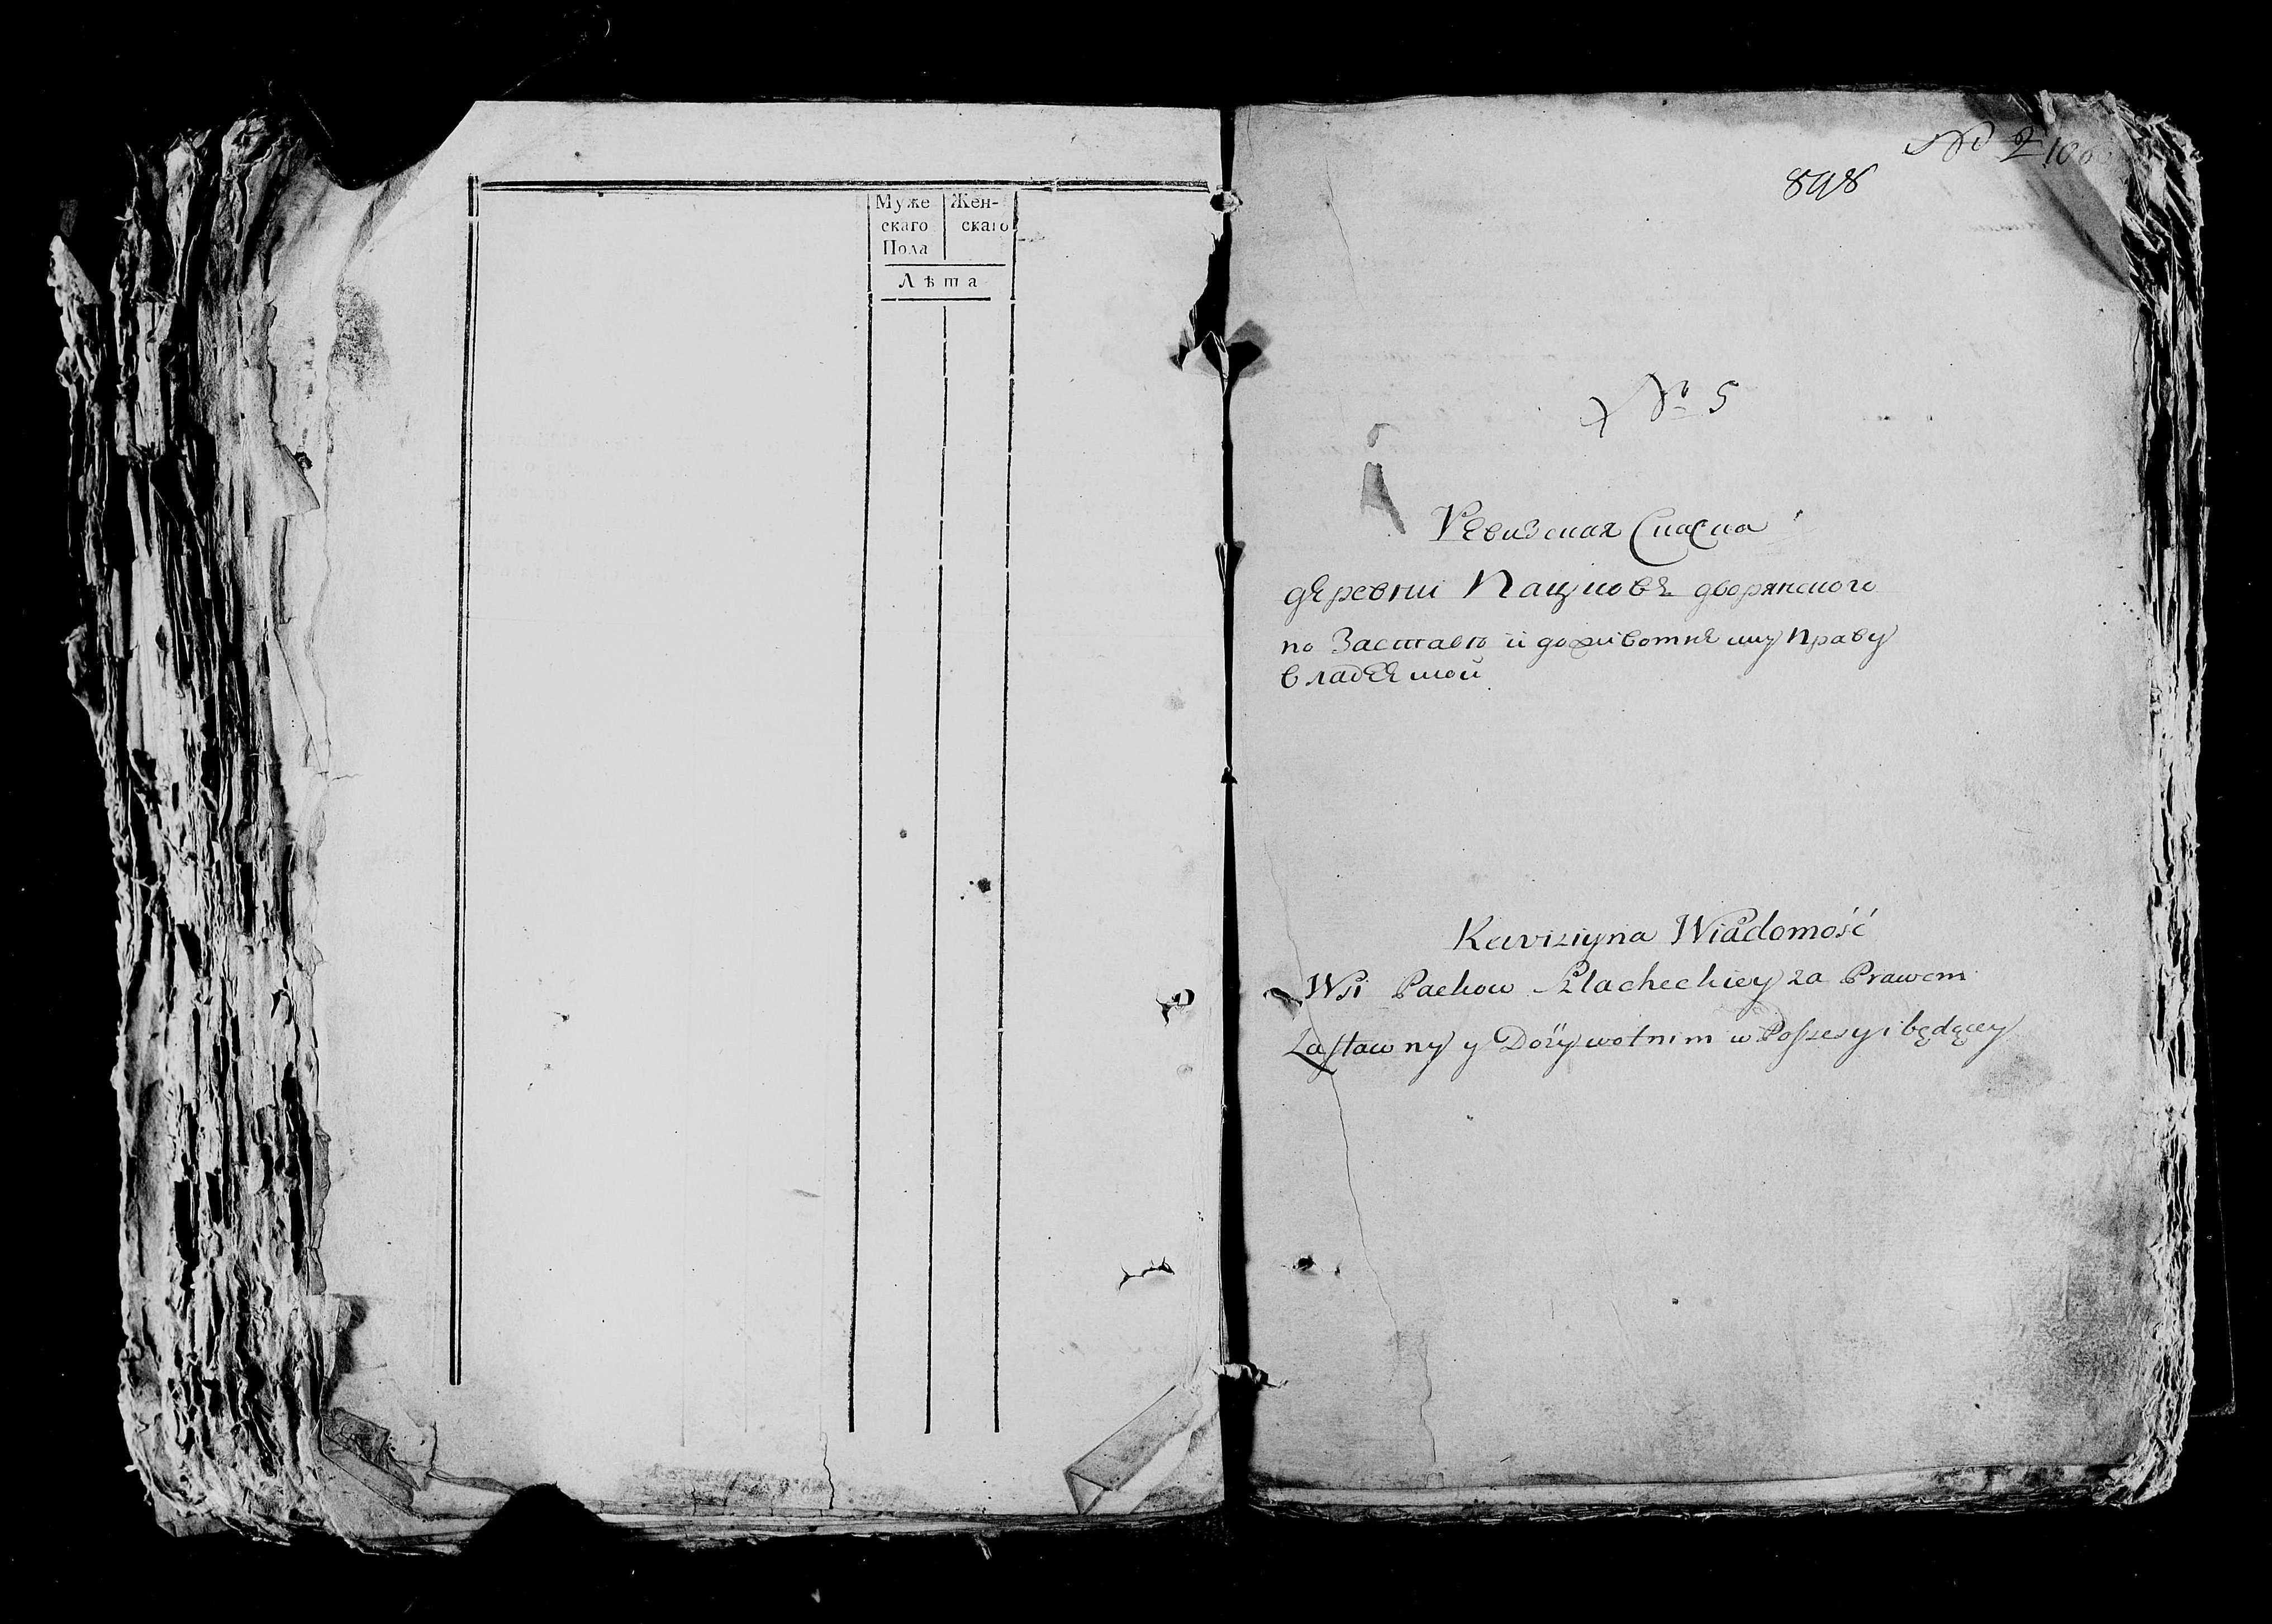 Муже Жен-
скаго скаго
Пола
Лѣта
898
№ 5
Ревизская Сказка
деревни Пацков дворянского
по Заставю и доживотнему праву
владеемой
Rewiziyna Wiadomość
Wsi Packow Szlacheckiey za Prawem
Zastawny y Dożywotnim w Possesyi będącey